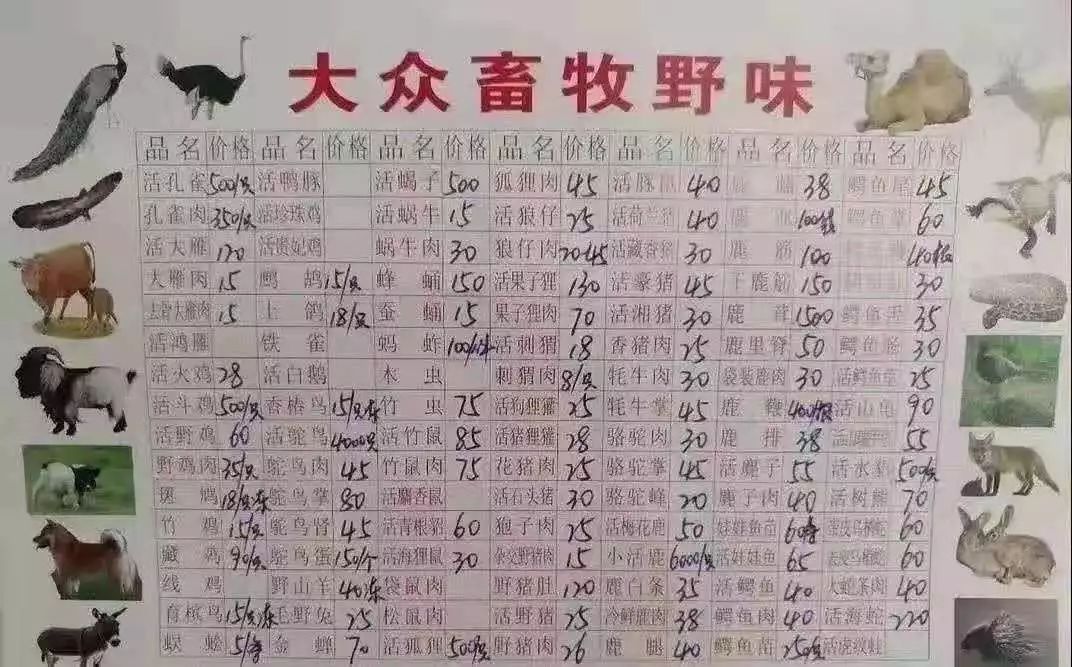 大众畜牧野味
品名 价格 品名 价格 品名 价格 品名 价格 品名 价格 品名 价格 品名 价格
活孔雀 500/只 活鸭豚 活蝎子 500 狐狸肉 45 活豚鼠 40 38 鳄鱼尾 45
孔雀肉 350/只 活珍珠鸡 活蜗牛 15 活狼仔 25 活荷兰猪 40 鳄鱼掌 60
活大雁 120 活贵妃鸡 蜗牛肉 30 狼仔肉 20-45 活藏香猪 30 鹿筋 100
大雁肉 15 鹧鸪 15/只 蜂蛹 150 活果子狸 130 活豪猪 45 干鹿筋 150 30
去骨大雁肉 15 土鸽 18/只 蚕蛹 15 果子狸肉 70 活湘猪 30 鹿茸 1500 鳄鱼舌 35
活鸿雁 铁雀 蚂蚱 活刺猬 18 香猪肉 25 鹿里脊 50 鳄鱼肠 30
活火鸡 28 活白鹅 木虫 刺猬肉 8/只 牦牛肉 30 袋装鹿肉 30 活鳄鱼龟 25
活斗鸡 500/只 香椿鸟 15/只冻 竹虫 75 活狗狸獾 25 牦牛掌 45 鹿鞭 活山龟 90
活野鸡 60 活鸵鸟 4000只 活竹鼠 85 活猪狸獾 28 骆驼肉 30 鹿排 38 55
野鸡肉 35/只 鸵鸟肉 45 竹鼠肉 75 花猪肉 25 骆驼掌 45 活麂子 55 活水貂 500/只
斑鸠 18/只冻 鸵鸟掌 80 活麝香鼠 活石头猪 30 骆驼峰 20 麂子肉 40 活树熊 70
竹鸡 15/只 鸵鸟肾 45 活青根貂 60 狍子肉 25 活梅花鹿 50 娃娃鱼苗 60 60
藏鸡 90/只 鸵鸟蛋 150/个 活海狸鼠 30 杂交野猪肉 15 小活鹿 6000/只 活娃娃鱼 65 60
线鸡 野山羊 40冻 袋鼠肉 野猪肚 120 鹿白条 35 活鳄鱼 40 大蟒条肉 40
育槟鸟 15/只冻 毛野兔 25 松鼠肉 活野猪 25 冷鲜鹿肉 38 鳄鱼肉 40 活海蛇 220
蜈蚣 金蝉 70 活狐狸 500/只 野猪肉 26 鹿腿 40 鳄鱼苗 250/只 活虎纹蛙